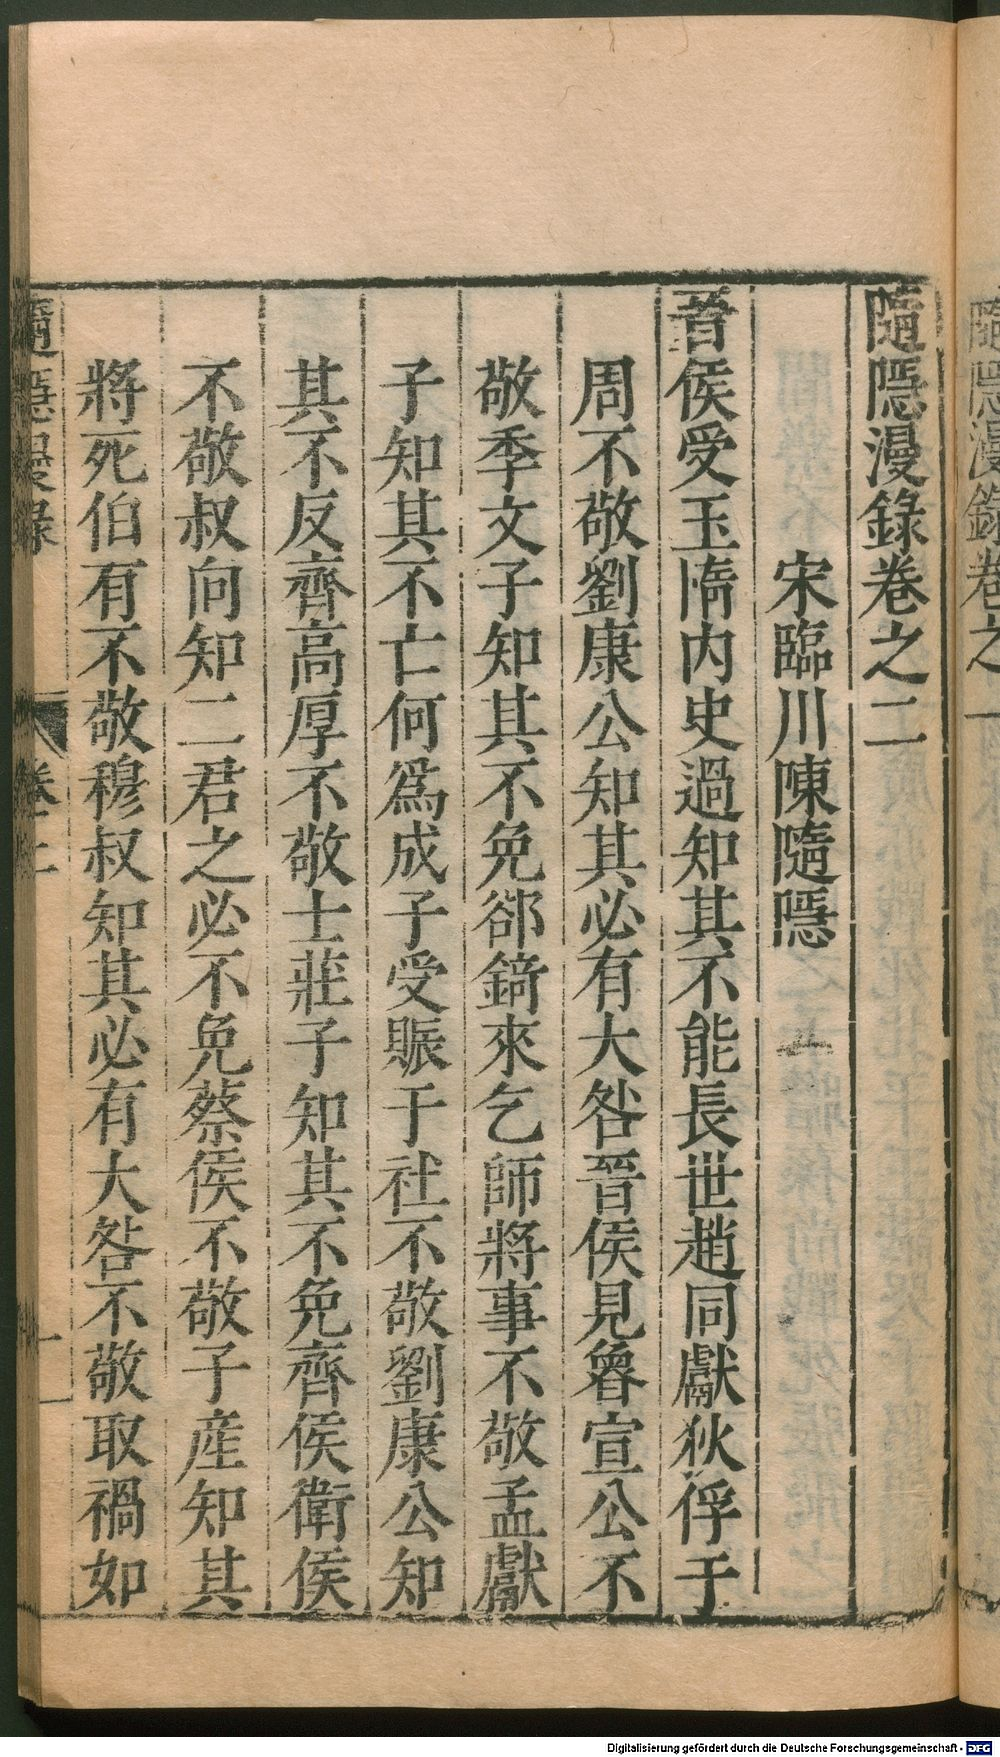 隨隱漫錄卷之一
隨隱漫錄卷之二
宋臨川陳隨隱
晉侯受玉惰内史過知其不能長世趙同獻狄俘于
周不敬劉康公知其必有大咎晉侯見魯宣公不
敬季文子知其不免郤錡來乞師將事不敬孟獻
子知其不亡何爲成子受賑于社不敬劉康公知
其不反齊高厚不敬士莊子知其不免齊侯衛侯
不敬叔向知二君之必不免蔡侯不敬子産知其
將死伯有不敬穆叔知其必有大咎不敬取禍如
隨隱漫錄
卷之二
一
Digitalisierung gefördert durch die Deutsche Forschungsgemeinschaft - DFG